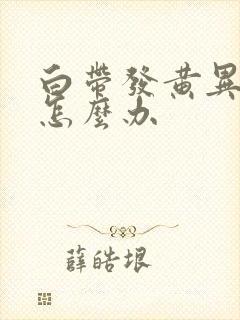 白帶發黃異
怎麼办
薛皓垠